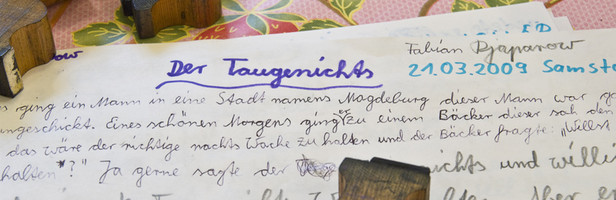 ED
ow Der Taugenichts Fabian Djaparow
21.03.2009 Samsta
s ging ein Mann in eine Stadt namens Magdeburg dieser Mann war
ungeschickt. Eines schönen Morgens ging zu einem Bäcker dieser sah den
das wäre der richtige nachts Wache zu halten und der Bäcker fragte: „Willst
halten"?" Ja gerne sagte der ichts und willi